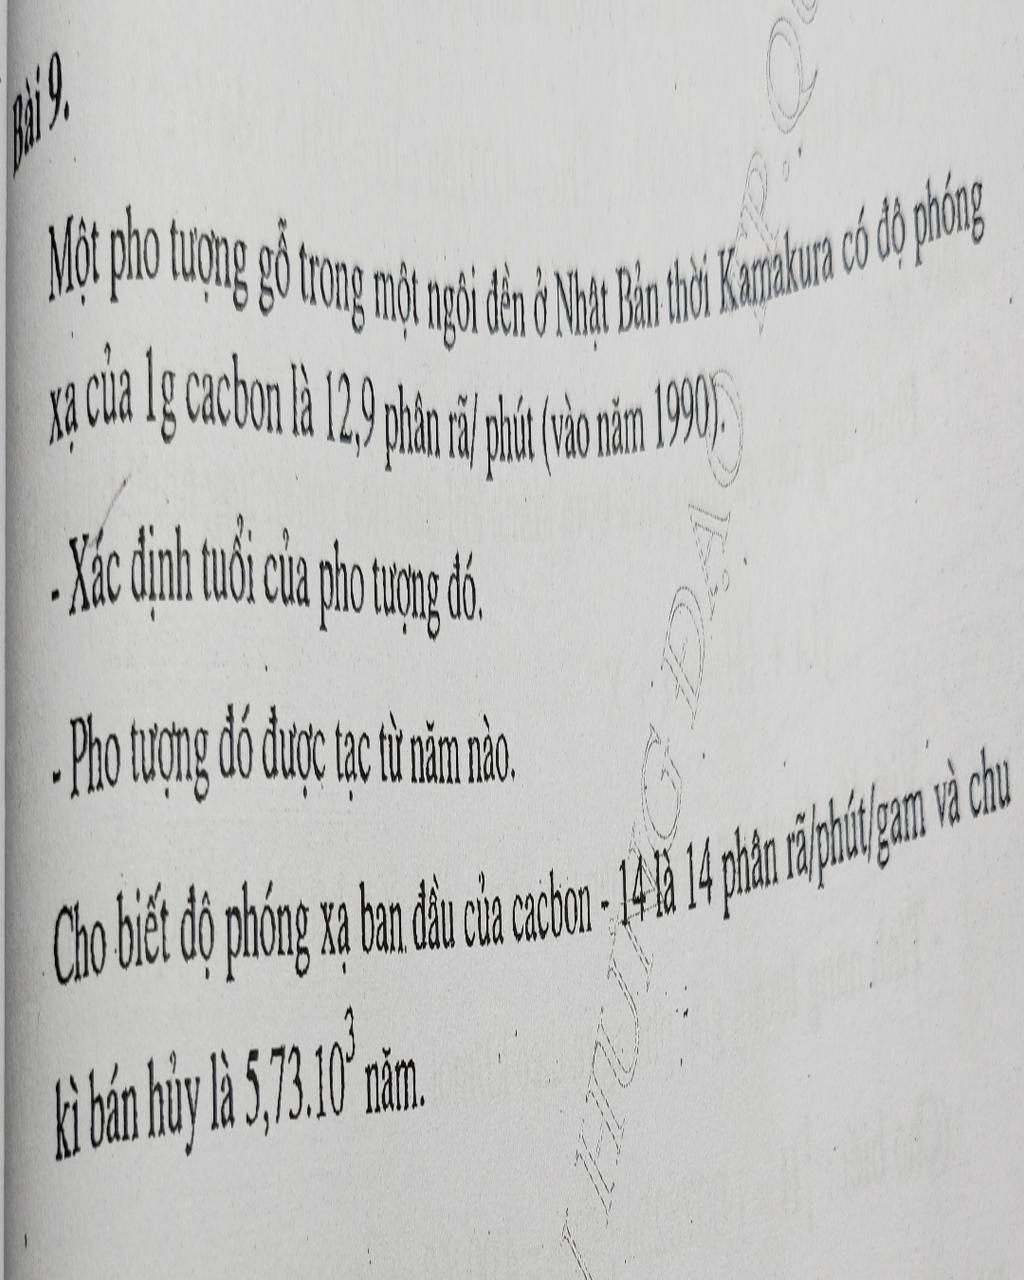 Bài 9.
Một pho tượng gỗ trong một ngôi đền ở Nhật Bản thời Kamakura có độ phóng
xạ của 1g cacbon là 12,9 phân rã/ phút (vào năm 1990).
- Xác định tuổi của pho tượng đó.
- Pho tượng đó được tạc từ năm nào.
Cho biết độ phóng xạ ban đầu của cacbon - 14 là 14 phân rã/phút/gam và chu
kì bán hủy là 5,73.10³ năm.
HƯNG ĐẠO